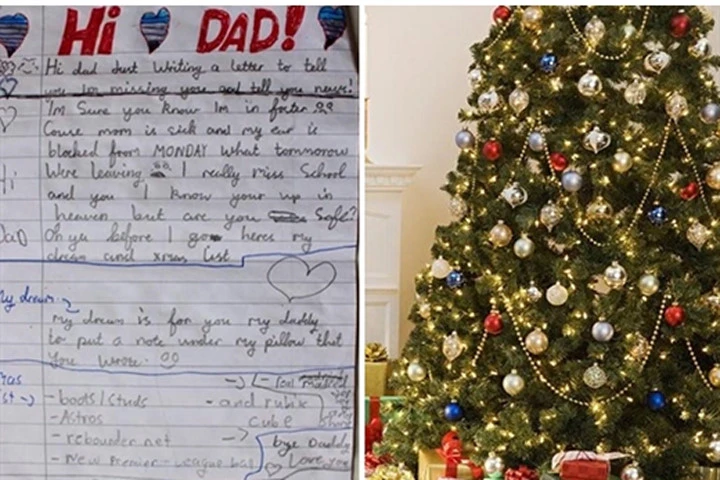 Hi DAD!
Hi dad Just Writing a letter to tell
you im missing you and tell you news!
I'm Sure you know Im in foster
Couse mom is sick and my ear is
blocked from MONDAY what tommorow
Were leaving I really miss School
and you I know your up in
heaven but are you Safe?
Oh ya before I go heres my
dream and xmas list
My dream
my dream is for you my daddy
to put a note under my pillow that
you wrote
xmas
list
- boots/studs
- Astros
- rebounder net
- New Premier-league ball
- and rubix
cube
bye Daddy
Love you